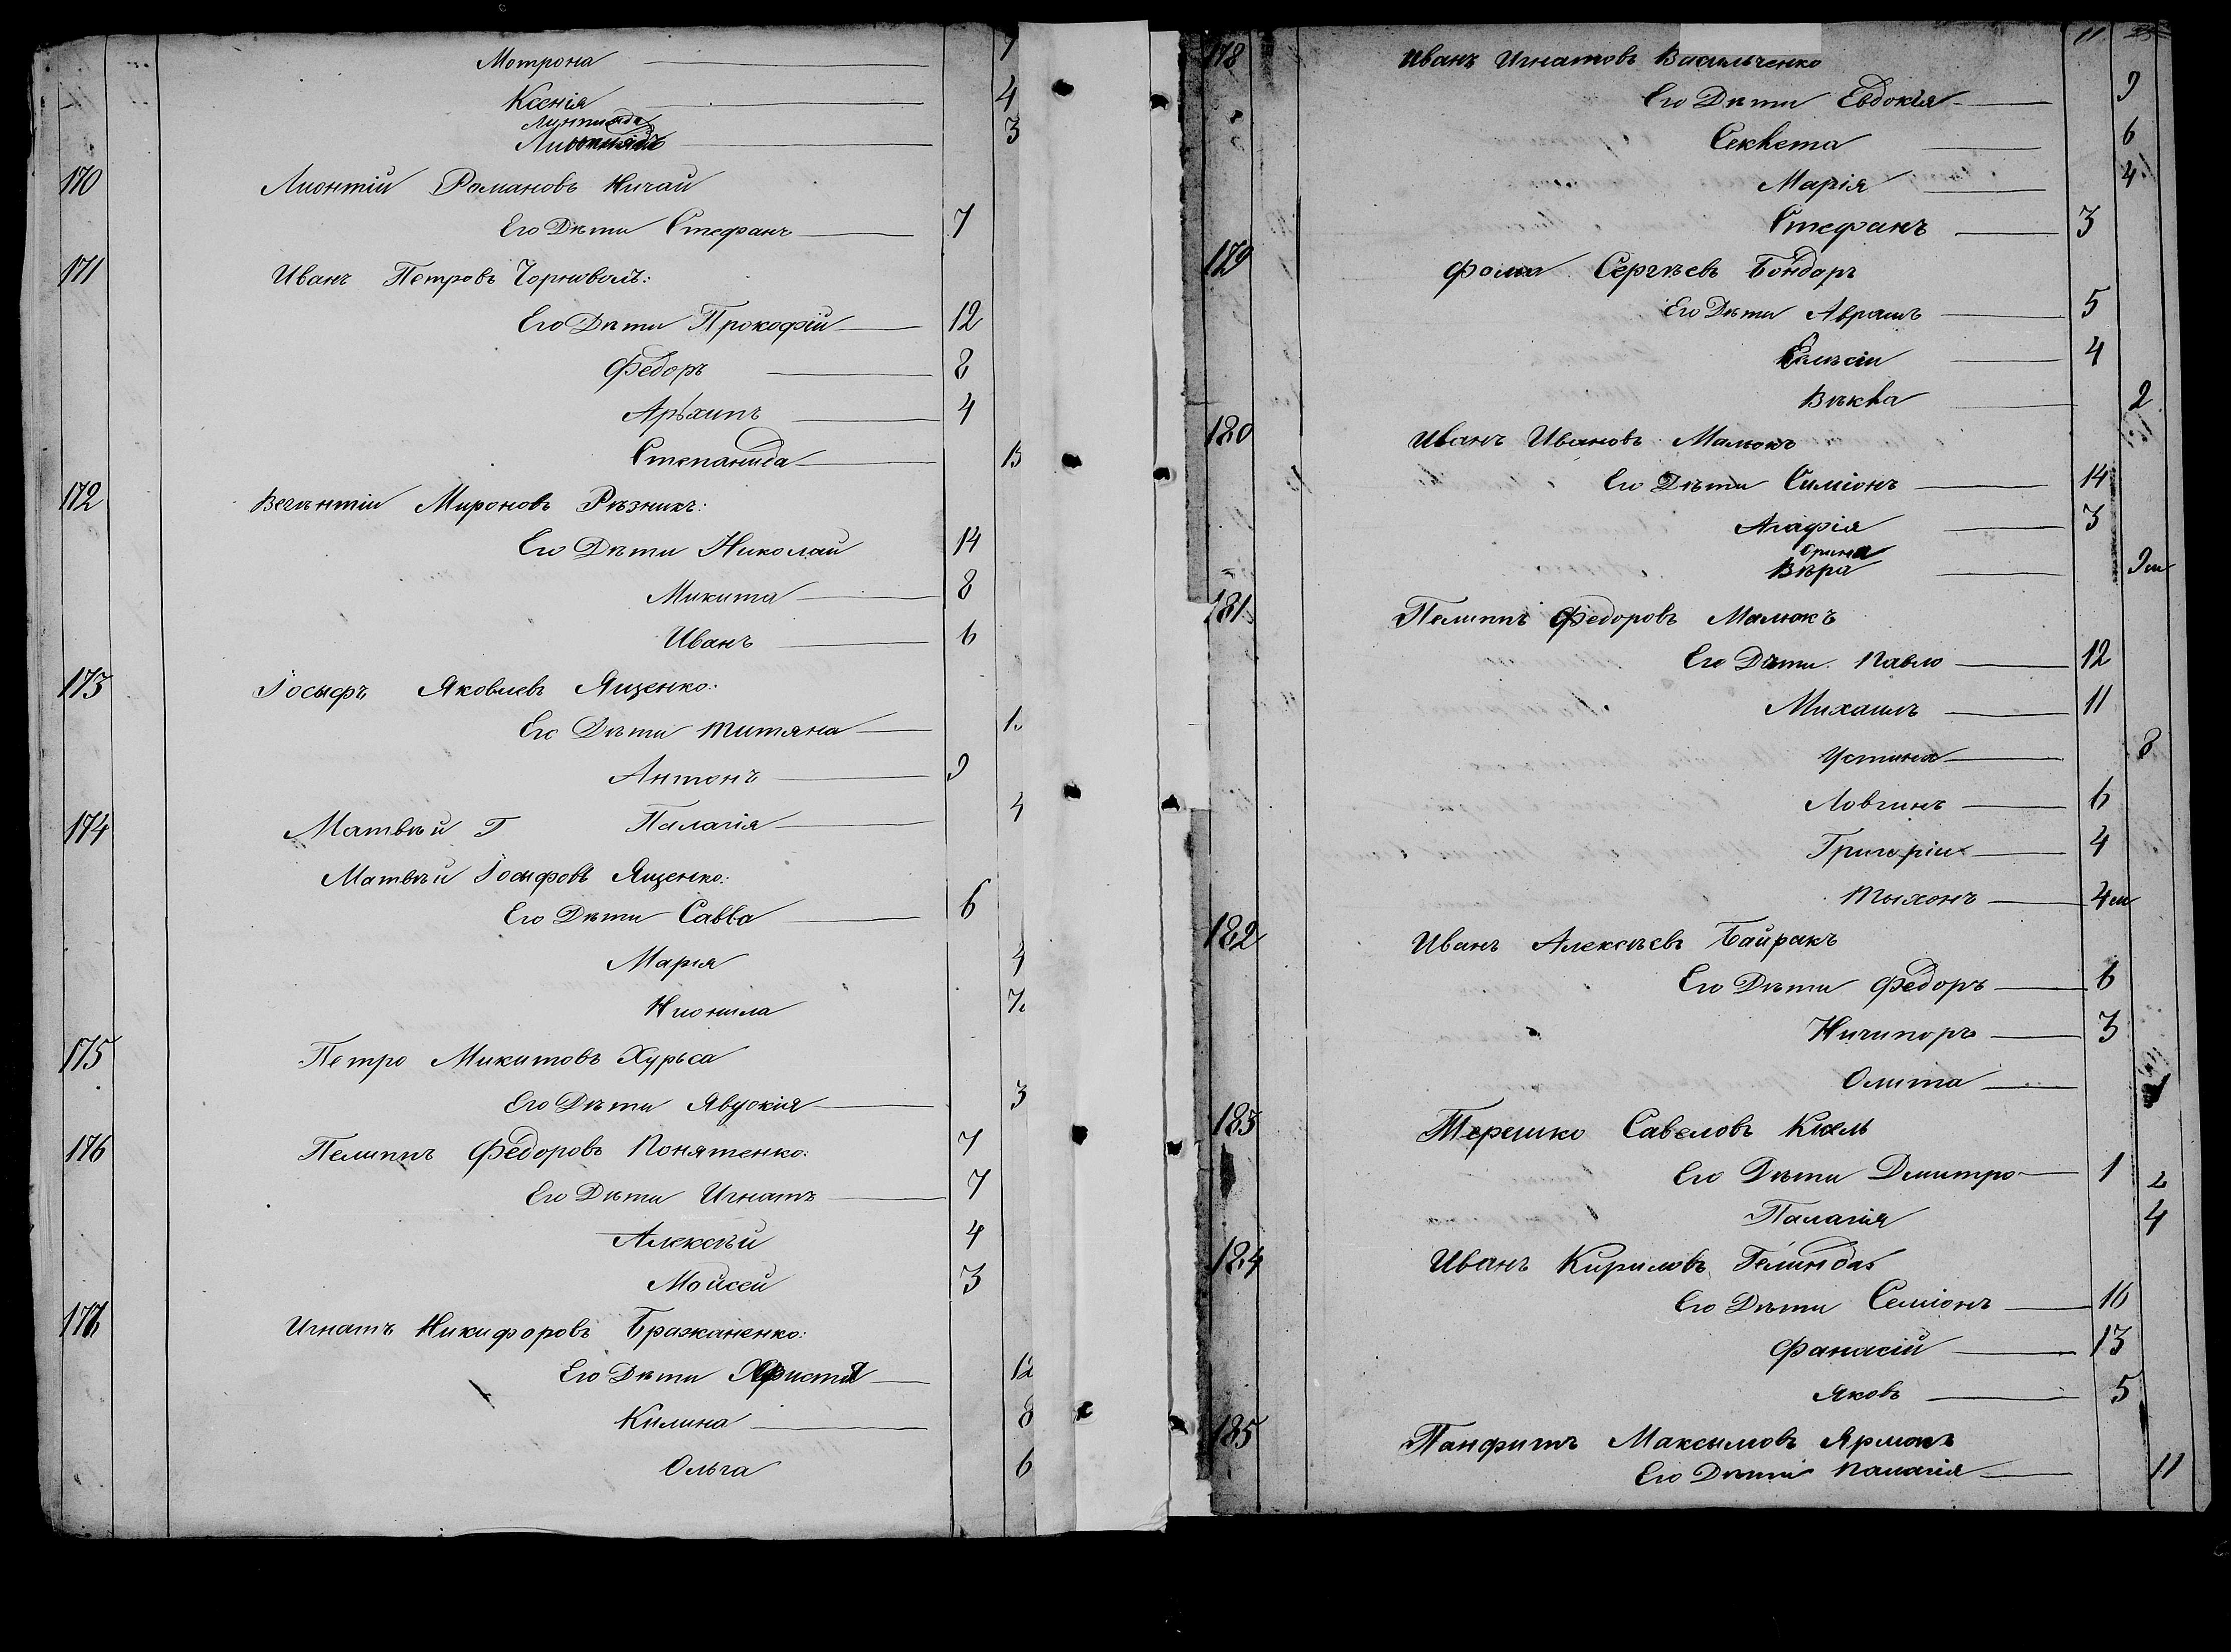 Мотрона 7
Ксенія 4
3
170 Лионтій Романовъ Ничай
Его Дѣти Стефанъ 7
171 Иванъ Петровъ Чорноволъ:
Его Дѣти Прокофій 12
Федоръ 8
Арьхипъ 4
Степанида
172 Мироновъ Рѣзникъ:
Его Дѣти Николай 14
Микита 8
Иванъ 6
173 Іосыфъ Яковлевъ Яценко:
Его Дѣти Титяна
Антонъ 9
174 Матвѣй Г Палагія 4
Матвѣй Іосыфовъ Яценко:
Его Дѣти Савва 6
Марія 4
Нионила
175 Петро Микитовъ Хурьса
Его Дѣти Явдокія 3
176 Пелипъ Федоровъ Понятенко: 7
Его Дѣти Игнатъ 7
Алексѣй 4
Мойсей 3
177 Игнатъ Никифоровъ Бражаненко:
Его Дѣти Христя 12
Килина 8
Ольга 6
11
178 Иванъ Игнатовъ Васильченко
Его Дѣти Евдокія 9
Секлета 6
Марія 4
Стефанъ 3
179 Фома Сергѣевъ Бондаръ
Его Дѣти Аврамъ 5
Елисѣй 4
Вѣкла 2
180 Иванъ Ивановъ Малюкъ
Его Дѣти Симіонъ 14
Агафія 3
Орина
Вѣра 9м
181 Пелипъ Федоровъ Малюкъ
Его Дѣти Павло 12
Михаилъ 11
Устиня 8
Ловгинъ 6
Григорій 4
Тыхонъ 4м
182 Иванъ Алексѣевъ Байракъ
Его Дѣти Федоръ 6
Ничипоръ 3
Олита
183 Терешко Савеловъ
Его Дѣти Дмитро 1 2
Палагія 4
184 Иванъ Кириловъ Гелинда
Его Дѣти Семіонъ 16
Фанасій 13
Яковъ 5
185 Панфилъ Максимовъ
Его Дѣти Палагія 11